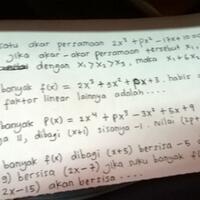 satu akar persamaan 2x³ + px² - 17x + 10 =
jika akar-akar persamaan tersebut x₁,
dengan x₁ > x₂ > x₃, maka x₁ + 6x
banyak f(x) = 2x³ + 9x² + px + 3. habis
faktor linear lainnya adalah ....
banyak P(x) = 2x⁴ + px³ - 3x² + 5x + 9
11, dibagi (x+1) sisanya -1. Nilai (2p+
banyak f(x) dibagi (x+5) bersisa -5
9) bersisa (2x-7) jika suku banyak f(
2x-15) akan bersisa ....